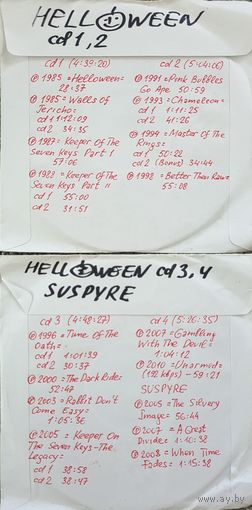 HELLOWEEN
cd 1, 2
cd 1 (4:39:20)
℗ 1985 =Helloween=
28:37
℗ 1985 = Walls of
Jericho=
cd 1 1:12:09
cd 2 34:35
℗ 1987= Keeper Of The
Seven Keys Part I
57:06
℗ 1988 = Keeper Of The
Seven Keys Part II
cd 1 55:00
cd 2 31:51
cd 2 (5:04:06)
℗ 1991 =Pink Bubbles
Go Ape 50:59
℗ 1993 = Chameleon=
cd 1 1:11:25
cd 2 41:26
℗ 1994 = Master Of The
Rings=
cd 1 50:22
cd 2 (Bonus) 34:44
℗ 1998 = Better Than Raw=
55:08
HELLOWEEN cd 3, 4
SUSPYRE
cd 3 (4:48:27)
℗ 1996 = Time Of The
Oath=
cd 1 1:01:39
cd 2 30:37
℗ 2000 =The Dark Ride=
52:47
℗ 2003 = Rabbit Don't
Come Easy=
1:05:36
℗ 2005 = Keeper On
The Seven Keys-The
Legacy=
cd 1 38:58
cd 2 38:47
cd 4 (5:26:35)
℗ 2007 = Gambling
With The Devil=
1:04:12
℗ 2010 = Unarmed=
(192 kbps) - 59:21
SUSPYRE
℗ 2005 = The Silvery
Image= 56:44
℗ 2007 = A Great
Divide= 1:10:38
℗ 2008 = When Time
Fades= 1:15:38
www.ay.by